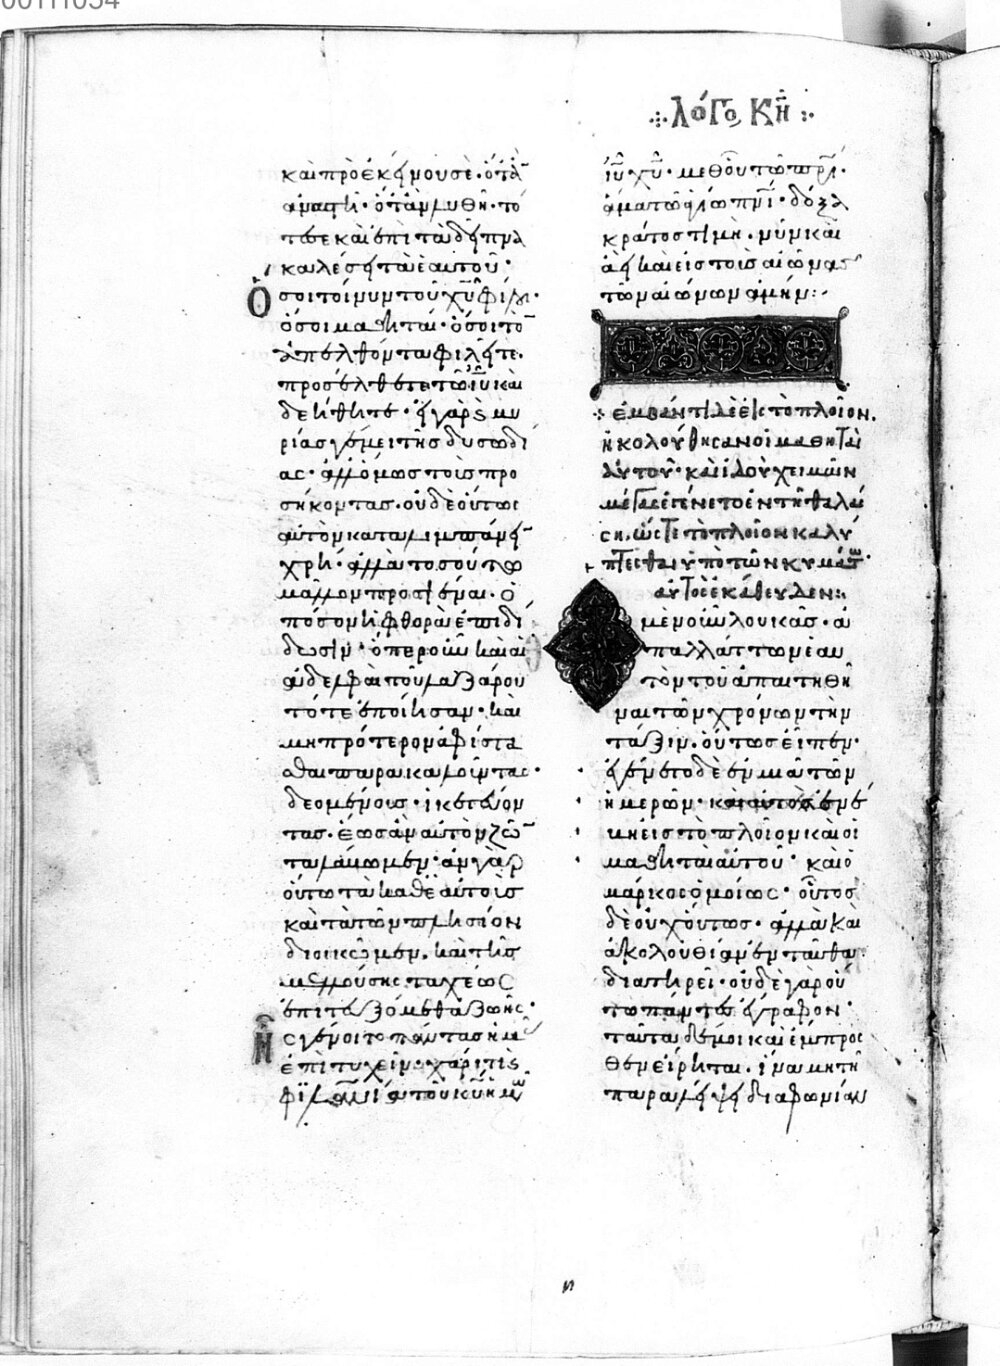 λόγο κη
καὶ πρὸ ἐκείνου σὲ· ὅταν
ἀναστῆ· ὅταν λυθῆ· το
τώτε καὶ ἐπὶ τὰ δεῖπνα
καλέσηται ἑαυτοῦ·
Ὅσοι τοίνυν τοῦ χυ φίλοι·
ὅσοι μαθηταί· ὅσοι τὸν
ἀπελθόντα φιλεῖτε·
προσέλθετε τῶ ιυ καὶ
δεήθητε· εἰ γὰρ μυ
ρίας γέμει τῆς δυσωδί
ας· ἀλλ ὅμως τοῖς προ
σήκοντας· οὐδὲ οὕτως
αὐτὸν καταλιμπάνειν
χρὴ· ἀλλὰ τοσούτω
μᾶλλον προσιέναι· ὁ
πόσον ἡ φθορὰ ἐπιδί
δωσιν· ὅπερ οὖν καὶ αἱ
ἀδελφαὶ τοῦ λαζάρου
τότε ἐποίησαν· καὶ
μὴ πρότερον ἀφίστα
σθαι παρακαλοῦντας·
δεομένους· ἱκετεύον
τας· ἕως ἂν αὐτὸν ζῶν
τα λάβωμεν· ἂν γὰρ
οὕτω τὰ καθ ἑαυτοῖς
καὶ τὰ τῶν πλησίον
διοικῶμεν· καὶ τῆς
μελλούσης ταχέως
ἐπιτευξόμεθα ζωῆς·
Ἧς γένοιτο πάντας ἡμᾶς
ἐπιτυχεῖν· χάριτι
φιλανια τοῦ κυ ἡμῶν
ιυ χυ· μεθ οὗ τῶ πρι·
ἅμα τῶ ἁγίω πνι· δόξα
κράτος τιμὴ· νῦν καὶ
ἀεὶ καὶ εἰς τοὺς αἰῶνας
τῶν αἰώνων ἀμήν:
ἐμβάντι αὐτῶ εἰς τὸ πλοῖον,
ἠκολούθησαν οἱ μαθηταὶ
αὐτοῦ· καὶ ἰδοὺ χειμὼν
μέγας ἐγένετο ἐν τῆ θαλάσ
ση, ὥστε τὸ πλοῖον καλύ
πτεσθαι ὑπὸ τῶν κυμάτων·
αὐτὸς ἐκάθευδεν:
Ὁ μὲν οὖν λουκᾶς· ἀ
παλλάττων ἑαυ
τὸν τοῦ ἀπαιτηθῆ
ναι τῶν χρόνων τὴν
τάξιν· οὕτως εἶπεν·
ἐγένετο δὲ ἐν μιᾶ τῶν
ἡμερῶν· καὶ αὐτὸς ἐνέ
βη εἰς τὸ πλοῖον καὶ οἱ
μαθηταὶ αὐτοῦ· καὶ ὁ
μάρκος ὁμοίως· οὗτος
δὲ οὐχ οὕτως· ἀλλὰ καὶ
ἀκολουθίαν ἐνταῦθα
διατηρεῖ· οὐδὲ γὰρ οὕ
τω πάντες ἔγραφον·
ταῦτα δέ μοι καὶ ἔμπροσ
θεν εἴρηται· ἵνα μὴ τῆ
παραλείψει διαφωνίαν